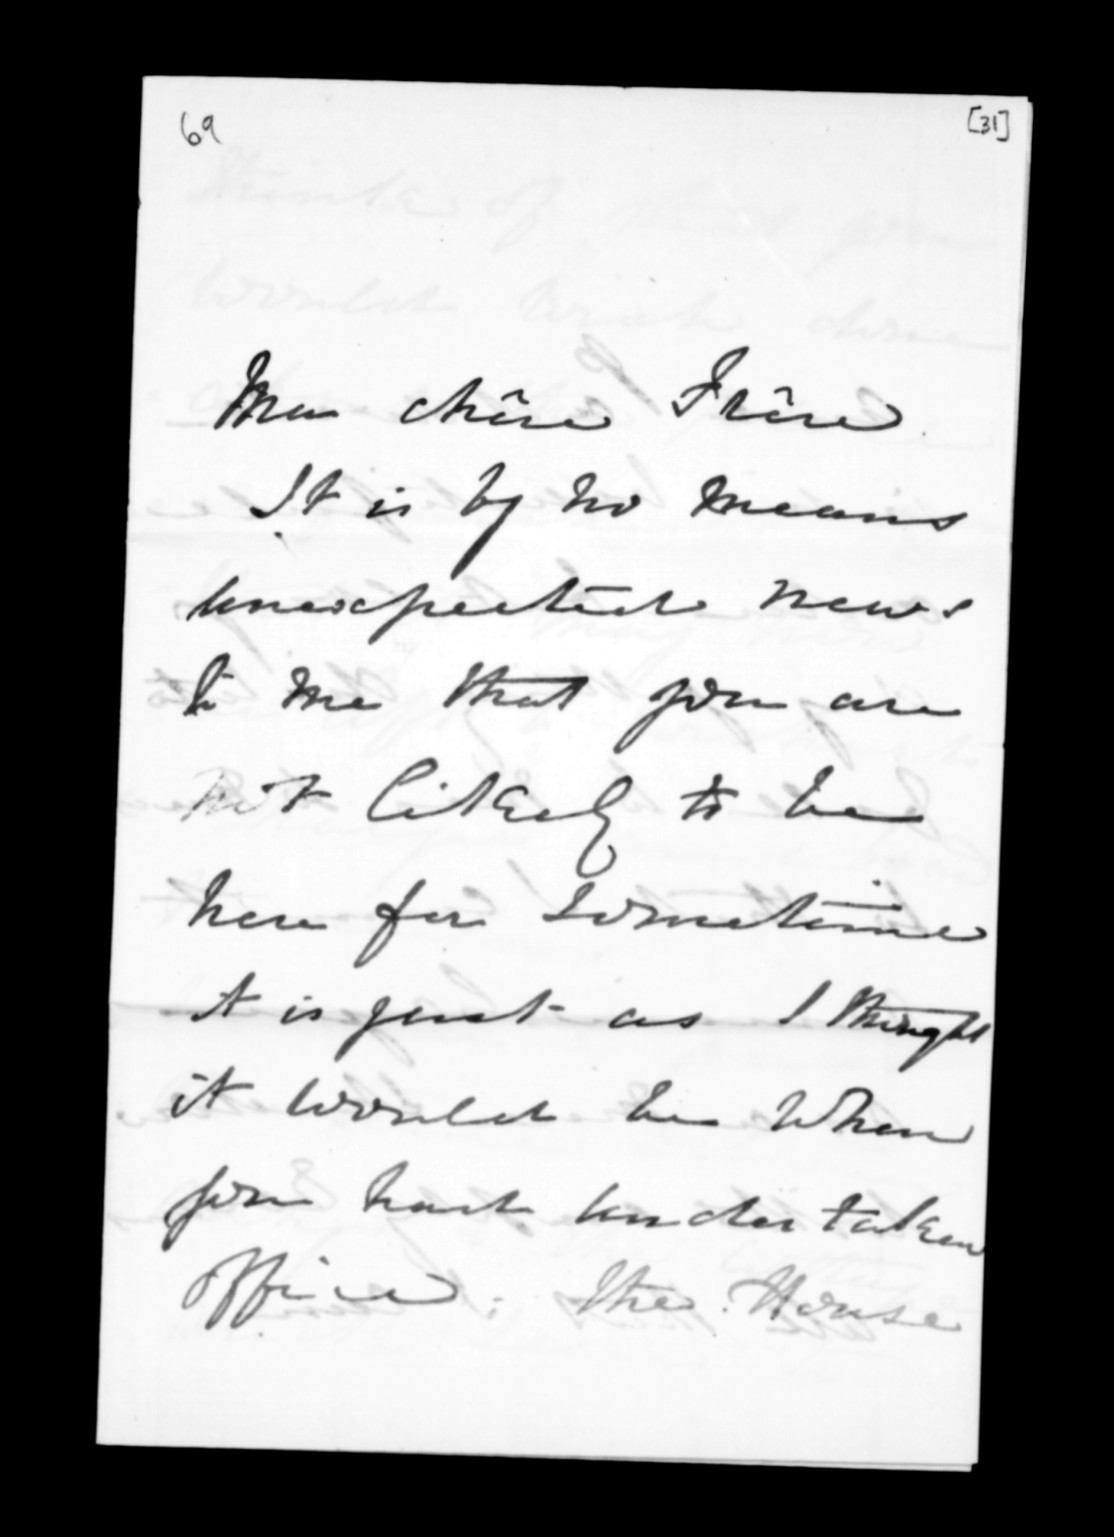 69 [31]
Mon chêre Frêre
It is by no means
unexpected news
to me that you are
not likely to be
here for sometime
it is just as I thought
it would be when
you had undertaken
office. The House